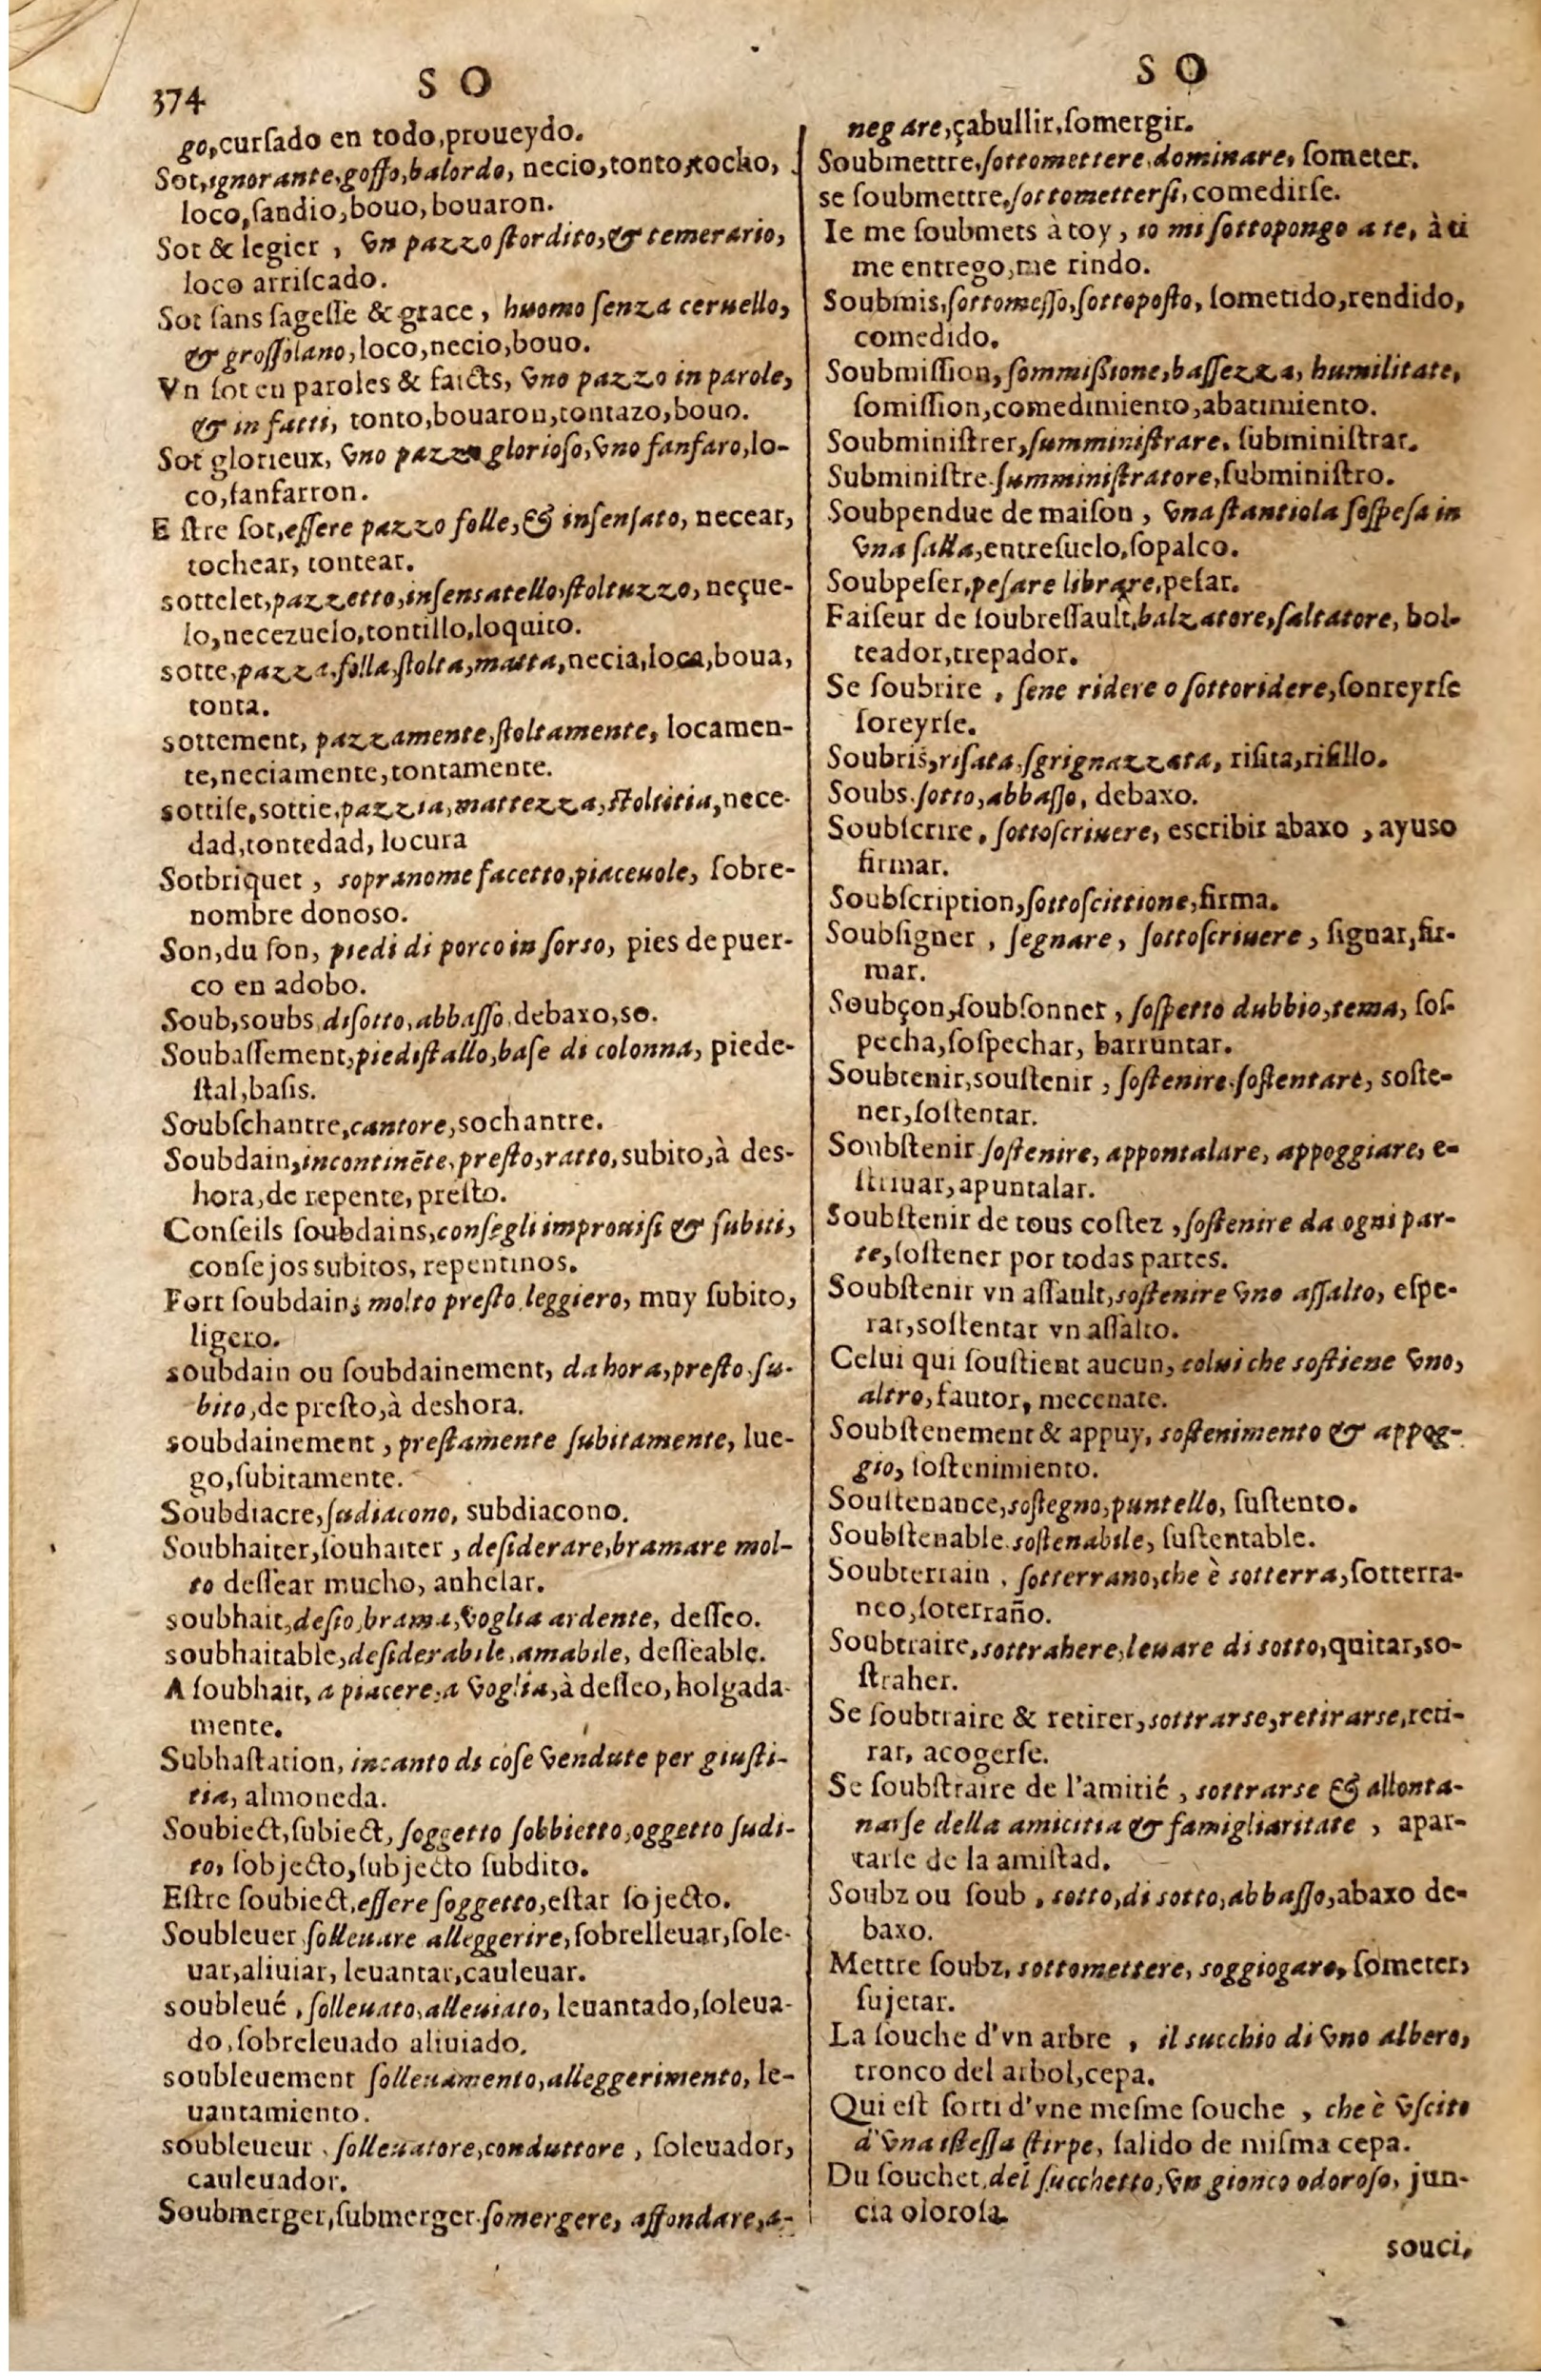 374
S O
go,curſado en todo,proueydo.
Sot,ignorante,goffo,balordo, necio,tonto,tocho,
loco,ſandio,bouo,bouaron.
Sot & legier , vn pazzo ſtordito,& temerario,
loco arriſcado.
Sot ſans ſageſſe & grace , huomo ſenza ceruello,
& groſſolano,loco,necio,bouo.
Vn ſot en paroles & faicts, vno pazzo in parole,
& in fatti, tonto,bouaron,tontazo,bouo.
Sot glorieux, vno pazzo glorioſo,vno fanfaro,lo-
co,fanfarron.
Eſtre ſot,eſſere pazzo folle,& inſenſato, necear,
tochear, tontear.
sottelet,pazzetto,inſensatello,ſtoltuzzo, neçue-
lo,necezuelo,tontillo,loquito.
sotte,pazza,folla,ſtolta,matta,necia,loca,boua,
tonta.
sottement, pazzamente,ſtoltamente, locamen-
te,neciamente,tontamente.
sottiſe,sottie,pazzia,mattezza,ſtoltitia,nece-
dad,tontedad, locura
Sotbriquet , sopranome facetto,piaceuole, ſobre-
nombre donoso.
Son,du ſon, piedi di porco in ſorso, pies de puer-
co en adobo.
Soub,soubs,diſotto,abbaſſo,debaxo,so.
Soubaſſement,piediſtallo,baſe di colonna, piede-
ſtal,baſis.
Soubſchantre,cantore,sochantre.
Soubdain,incontinẽte,preſto,ratto,subito,à des-
hora,de repente, preſto.
Conſeils ſoubdains,conſegli improuiſi & ſubiti,
conſejos subitos, repentinos.
Fort ſoubdain, molto preſto,leggiero, muy ſubito,
ligero.
soubdain ou ſoubdainement, da hora,preſto,ſu-
bito,de preſto,à deshora.
soubdainement , preſtamente ſubitamente, lue-
go,ſubitamente.
Soubdiacre,ſudiacono, subdiacono.
Soubhaiter,ſouhaiter , deſiderare,bramare mol-
to deſſear mucho, anhelar.
soubhait,deſio,brama,voglia ardente, deſſeo.
soubhaitable,deſiderabile,amabile, deſſeable.
A ſoubhait, a piacere,a voglia,à deſſeo,holgada-
mente.
Subhaſtation, incanto di coſe vendute per giuſti-
tia, almoneda.
Soubiect,ſubiect, ſoggetto ſobbietto,oggetto ſudi-
to, ſobjecto,ſubjecto ſubdito.
Eſtre ſoubiect,eſſere ſoggetto,eſtar ſojecto.
Soubleuer,ſolleuare alleggerire,ſobrelleuar,ſole-
uar,aliuiar, leuantar,cauleuar.
soubleué , ſolleuato,alleuiato, leuantado,ſoleua-
do,ſobreleuado aliuiado.
soubleuement ſolleuamento,alleggerimento, le-
uantamiento.
soubleueur , ſolleuatore,conduttore , ſoleuador,
cauleuador.
Soubmerger,ſubmerger,ſomergere, affondare,a-
S O
negare,çabullir,ſomergir.
Soubmettre,ſottomettere,dominare, ſometer.
se ſoubmettre,ſottometterſi,comedirſe.
Ie me ſoubmets à toy , io mi ſottopongo a te, à ti
me entrego,me rindo.
Soubmis,ſottomeſſo,ſottopoſto, ſometido,rendido,
comedido.
Soubmiſſion, ſommiſsione,baſſezza, humilitate,
ſomiſſion,comedimiento,abatimiento.
Soubminiſtrer,ſumminiſtrare, ſubminiſtrar.
Subminiſtre,ſumminiſtratore,ſubminiſtro.
Soubpendue de maiſon , vna ſtantiola ſoſpeſa in
vna ſalla,entreſuelo,ſopalco.
Soubpeſer,peſare librare,peſar.
Faiſeur de ſoubreſſault,balzatore,ſaltatore, bol-
teador,trepador.
Se ſoubrire , ſene ridere o ſottoridere,ſonreyrſe
ſoreyrſe.
Soubris,riſata,ſgrignazzata, riſita,riſillo.
Soubs,ſotto,abbaſſo, debaxo.
Soubſcrire, ſottoſcriuere, escribir abaxo , ayuso
firmar.
Soubſcription,ſottoſcittione,firma.
Soubſigner , ſegnare, ſottoſcriuere , ſignar,fir-
mar.
Soubçon,ſoubſonner , ſoſpetto dubbio,tema, ſoſ-
pecha,ſoſpechar, barruntar.
Soubtenir,souſtenir , ſoſtenire,ſoſtentare, soſte-
ner,ſoſtentar.
Soubſtenir ſoſtenire, appontalare, appoggiare, e-
ſtriuar,apuntalar.
Soubſtenir de tous coſtez , ſoſtenire da ogni par-
te,ſoſtener por todas partes.
Soubſtenir vn aſſault,soſtenire vno aſſalto, eſpe-
rar,soſtentar vn aſſalto.
Celui qui ſouſtient aucun, colui che soſtiene vno,
altro, fautor, mecenate.
Soubſtenement & appuy, soſtenimento & appog-
gio, ſoſtenimiento.
Souſtenance,soſtegno,puntello, ſuſtento.
Soubſtenable,soſtenabile, ſuſtentable.
Soubterrain , ſotterrano,che è sotterra,ſotterra-
neo,ſoterraño.
Soubtraire,sottrahere,leuare di sotto,quitar,so-
ſtraher.
Se ſoubtraire & retirer,sottrarse,retirarse,reti-
rar, acogerſe.
Se ſoubſtraire de l'amitié , sottrarse & allonta-
narſe della amicitia & famigliaritate , apar-
tarſe de la amiſtad.
Soubz ou ſoub , sotto,di sotto,abbaſſo,abaxo de-
baxo.
Mettre ſoubz, sottomettere, soggiogare, ſometer,
ſujetar.
La ſouche d'vn arbre , il succhio di vno albero,
tronco del arbol,cepa.
Qui eſt ſorti d'vne meſme ſouche , che è vſcito
d'vna iſteſſa ſtirpe, ſalido de miſma cepa.
Du ſouchet,del ſucchetto,vn gionco odoroso, jun-
cia oloroſa.
souci,